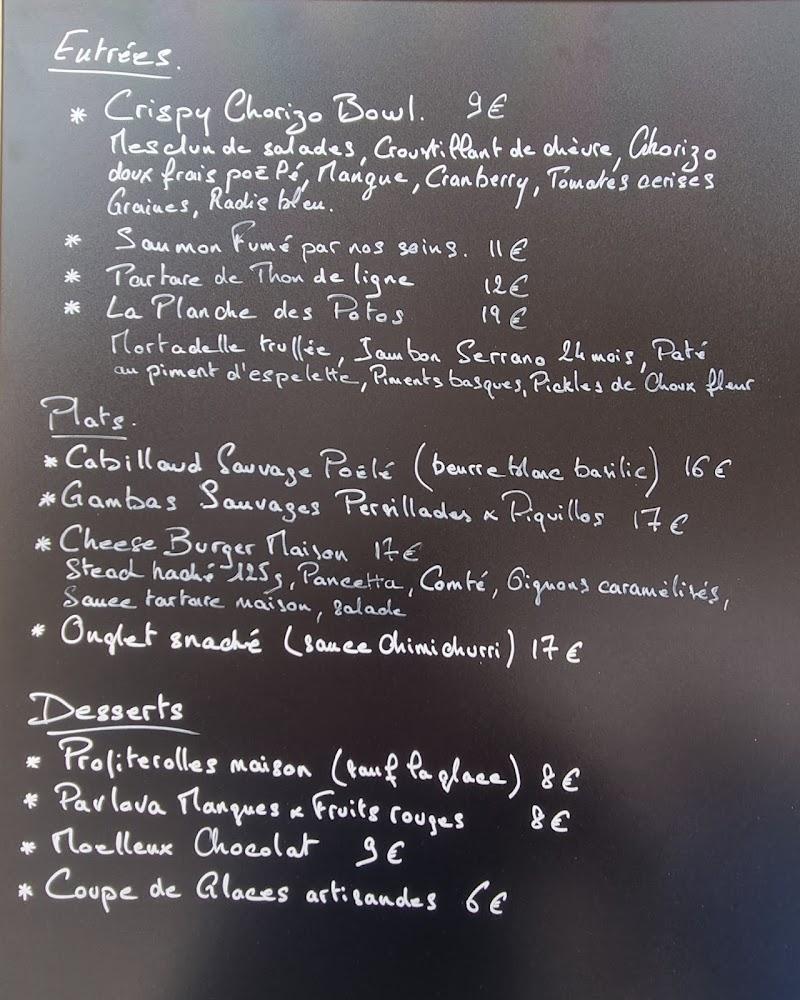 Entrées.
* Crispy Chorizo Bowl. 9€
Mesclun de salades, Croustillant de chèvre, Chorizo
doux frais poëlé, Mangue, Cranberry, Tomates cerises
Graines, Radis bleu.
* Saumon Fumé par nos soins. 11€
* Tartare de Thon de ligne 12€
* La Planche des Potos 19€
Mortadelle truffée, Jambon Serrano 24 mois, Paté
au piment d'espelette, Piments basques, Pickles de Choux fleur
Plats.
* Cabillaud Sauvage Poëlé (beurre blanc basilic) 16€
* Gambas Sauvages Persillades x Piquillos 17€
* Cheese Burger Maison 17€
Steack haché 125g, Pancetta, Comté, Oignons caramélisés,
Sauce tartare maison, salade
* Onglet snacké (sauce chimichurri) 17€
Desserts
* Profiterolles maison (sauf la glace) 8€
* Pavlova Mangues x Fruits rouges 8€
* Moelleux Chocolat 9€
* Coupe de Glaces artisanales 6€